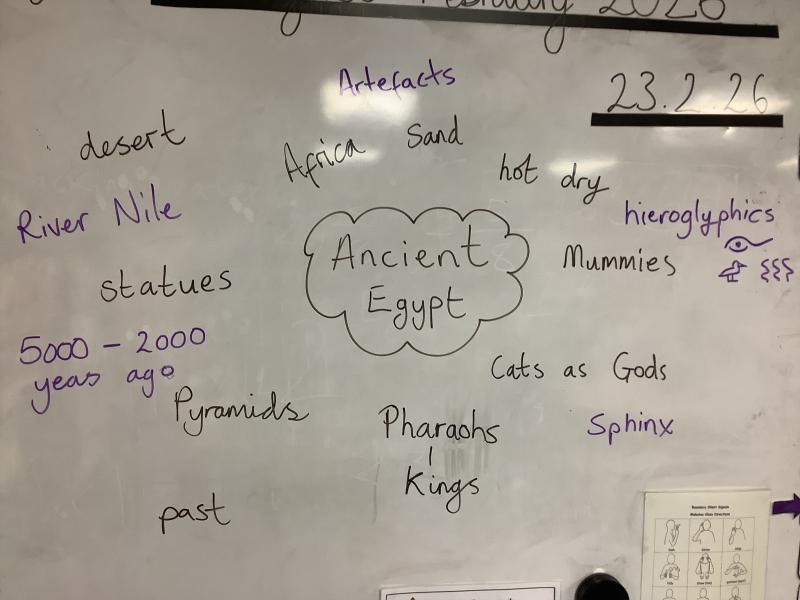 February 2026
23.2.26
Artefacts
desert
Africa
Sand
hot dry
River Nile
hieroglyphics
Ancient
Egypt
Mummies
statues
5000 - 2000
yeas ago
Cats as Gods
Pyramids
Pharaohs
Kings
Sphinx
past